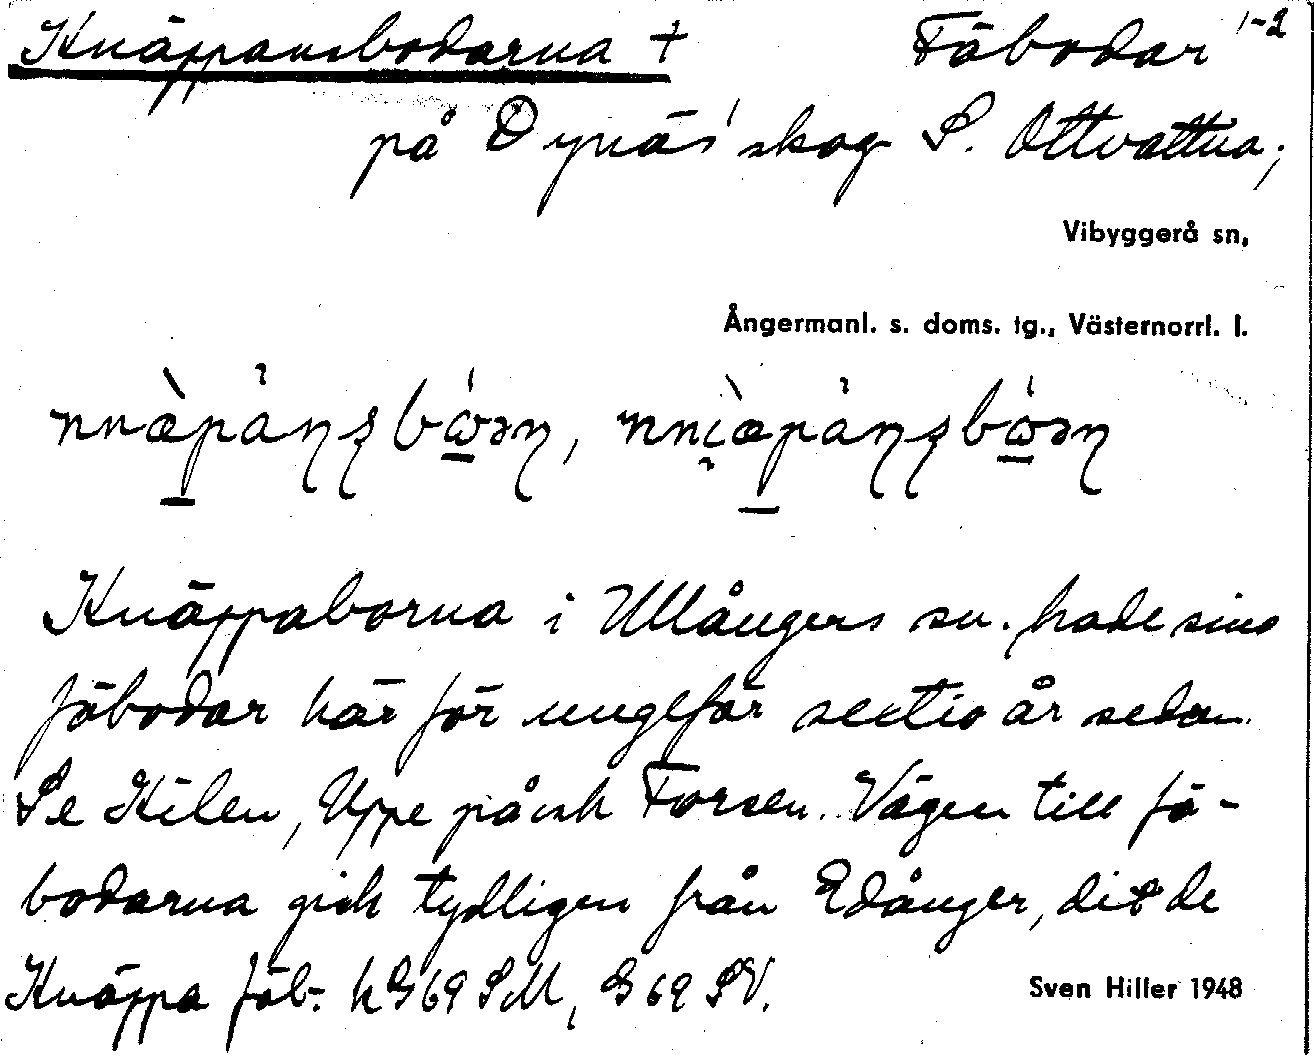 Knäppansbodarna + Fäbodar 1-2
på Dynäs' skog S. Ottvattna;
Vibyggerå sn,
Ångermanl. s. doms. tg., Västernorrl. l.
Knäppaborna i Ullångers sn. hade sina
fäbodar här för ungefär sextio år sedan.
Se Kilen, Uppe på och Forsen. Vägen till fä-
bodarna gick tydligen från Edånger, dit de
Knäppa fäb. k G69 SM, G69 SV.
Sven Hiller 1948